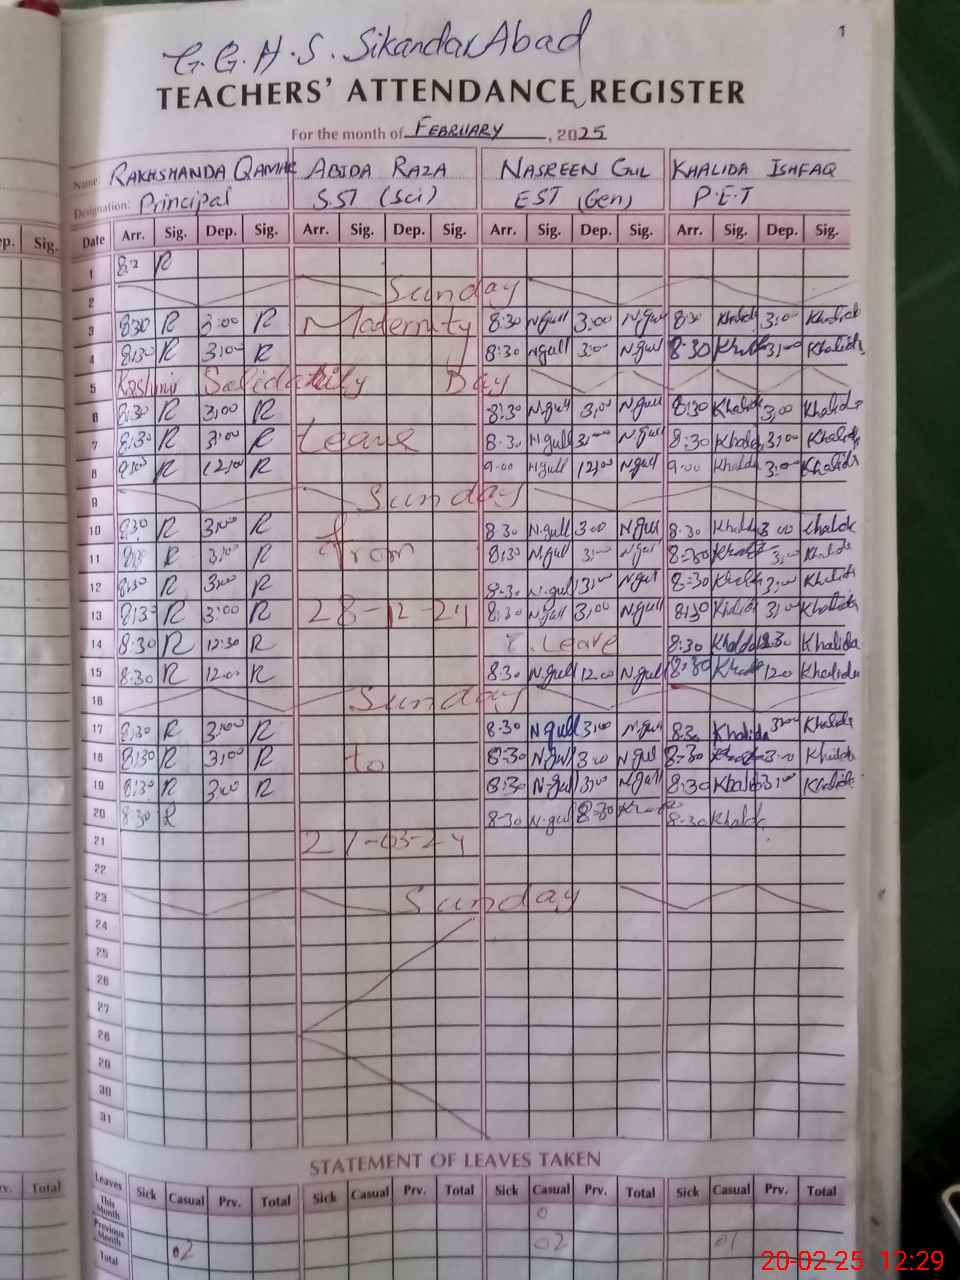 1
G.G.H.S. Sikandar Abad
TEACHERS' ATTENDANCE REGISTER
For the month of FEBRUARY, 2025
Name: RAKHSHANDA QAMAR ABIDA RAZA NASREEN GUL KHALIDA ISHFAQ
Designation: Principal S.ST (Sci) EST (Gen) P.E.T
ep. Sig. Date Arr. Sig. Dep. Sig. Arr. Sig. Dep. Sig. Arr. Sig. Dep. Sig. Arr. Sig. Dep. Sig.
1 R
2 Sunday
3 830 R 3:00 R Maternity 8:30 N.gull 3:00 N.gull Khalida 3:00 Khalida
4 8:30 R 3:00 R 8:30 Ngull N.gull 8:30 3:00 Khalida
5 Kashmir Day
6 8:30 R 3:00 R 8:30 N.gull 3:00 N.gull 8:30 Khalida 3:00 Khalida
7 8:30 R 3:00 R Leave N.gull 3:00 N.gull 8:30 Khalida 3:00 Khalida
8 9:00 R 12:00 R 9:00 Ngull 12:00 N.gull 9:00 Khalida 3:00 Khalida
9 Sunday
10 8:30 R 3:00 R 8:30 N.gull 3:00 N.gull 8:30 Khalida 3:00
11 R 3:00 R from 8:30 N.gull 3:00 N.gul 8:30 3:00 Khalida
12 8:30 R 3:00 R 8:30 N.gul 3:00 N.gul 8:30 3:00 Khalida
13 R 3:00 R 28-12-24 8:30 N.gull 3:00 N.gull 8:30 Khalida 3:00 Khalida
14 8:30 R 12:30 R Leave 8:30 Khalida 12:30 Khalida
15 8:30 R 12:00 R 8:30 N.gull 12:00 N.gull 8:30 12:00 Khalida
16 Sunday
17 8:30 R 3:00 R 8:30 N.gull 3:00 N.gull 8:30 Khalida 3:00 Khalida
18 8:30 R 3:00 R to 8:30 N.gul 3:00 N.gul 8:30 3:00 Khalida
19 8:30 R 3:00 R 8:30 N.gul 3:00 N.gull 8:30 Khalida 3:00 Khalida
20 8:30 R 8:30 N.gul 8:30 8:30 Khalida
21 21-03-24
22
23 Sunday
24
25
26
27
28
29
30
31
STATEMENT OF LEAVES TAKEN
rv. Total Leaves Sick Casual Prv. Total Sick Casual Prv. Total Sick Casual Prv. Total Sick Casual Prv. Total
This Month 0
Previous Month 02 02 01
Total
20-02-25 12:29